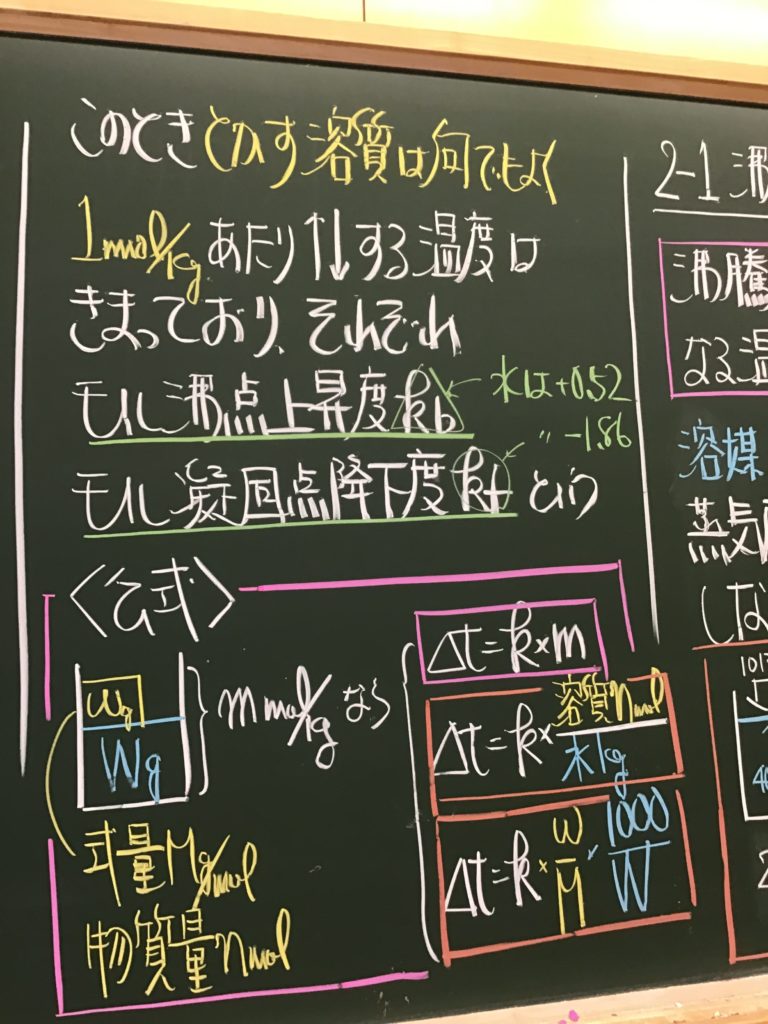 このときとかす溶質は何でもよく
1mol/kgあたり↑↓する温度は
きまっており、それぞれ
モル沸点上昇度kb ← 水は+0.52
モル凝固点降下度kf ← 〃 -1.86 という
〈公式〉
wg
Wg
m mol/kg なら
式量Mg/mol
物質量n mol
Δt=k×m
Δt=k×溶質n mol/水kg
Δt=k×w/M×1000/W
2-1 沸
沸騰
なる温
溶媒
蒸気
しな